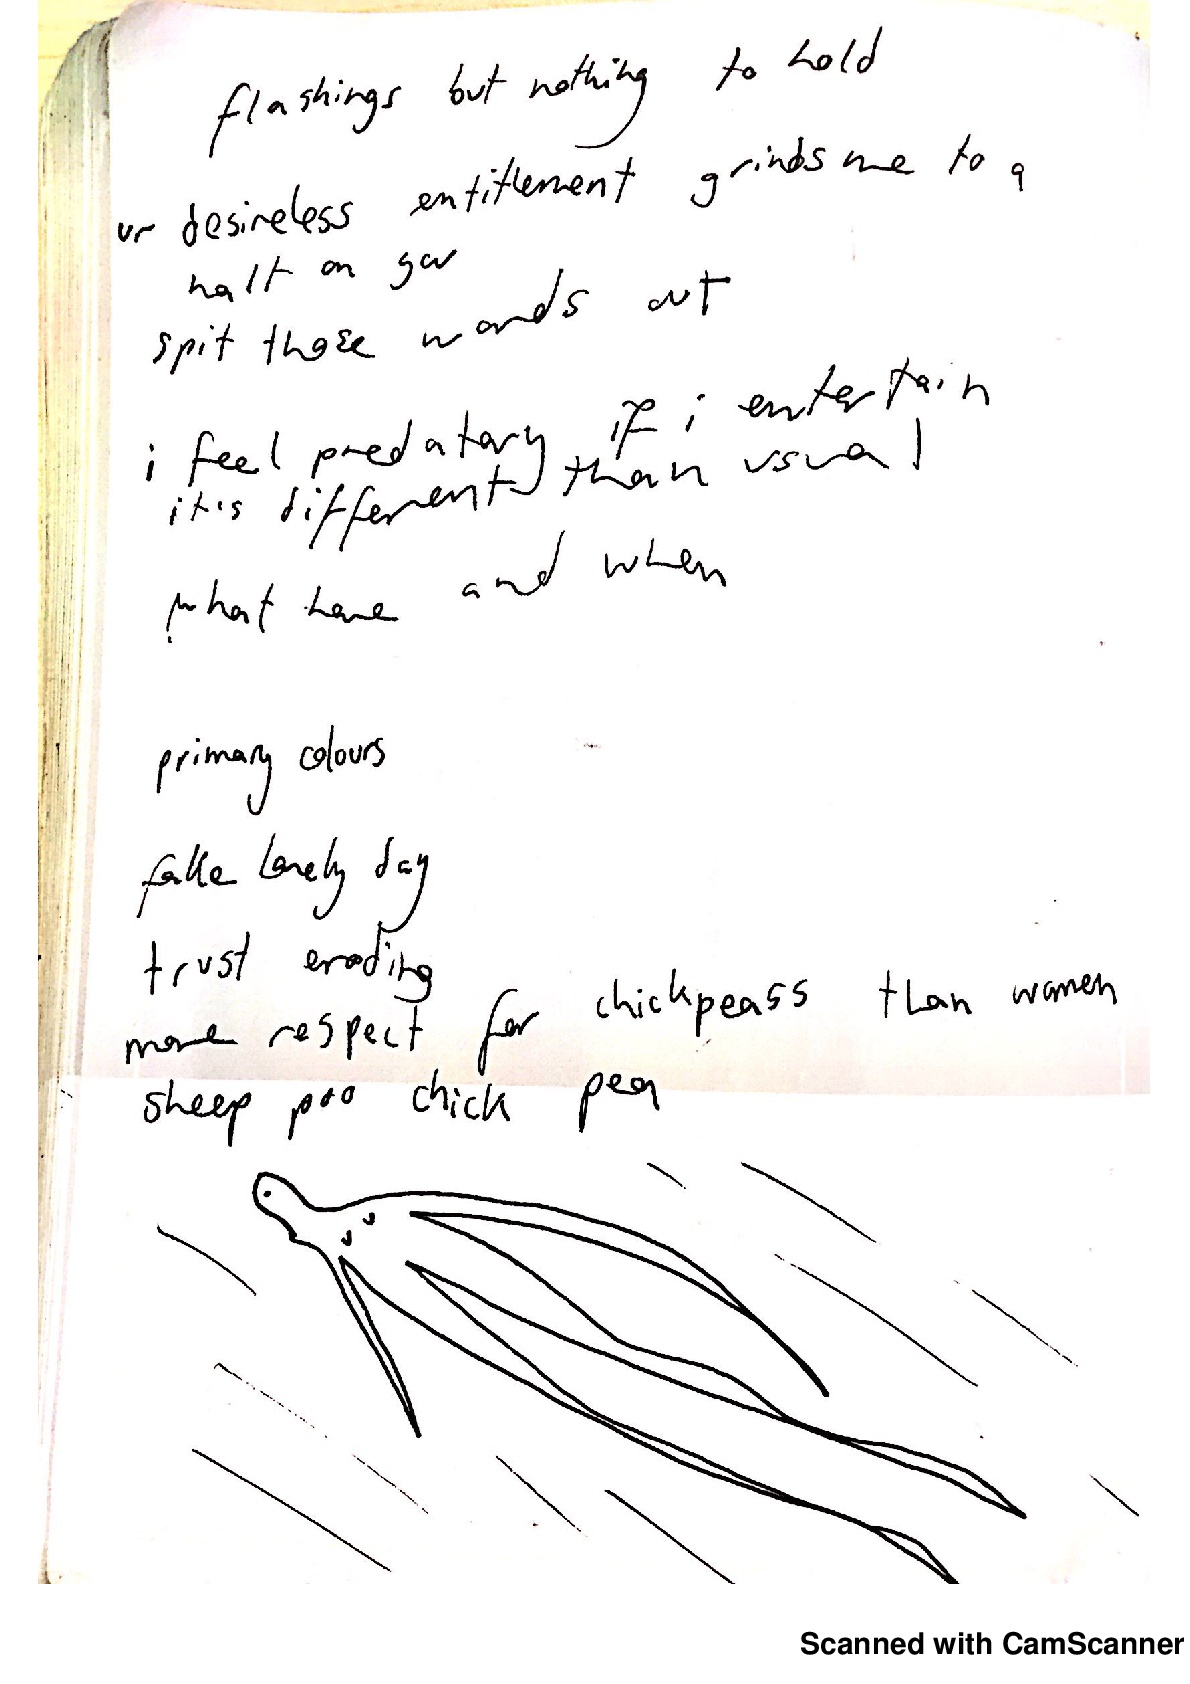 flashings but nothing to hold
ur desireless entitlement grinds me to a
halt on gov
spit those words out
i feel predatory if i entertain
it's different than usual
what have and when
primary colours
fake lonely day
trust eroding
more respect for chickpeass than women
sheep poo chick pea
Scanned with CamScanner